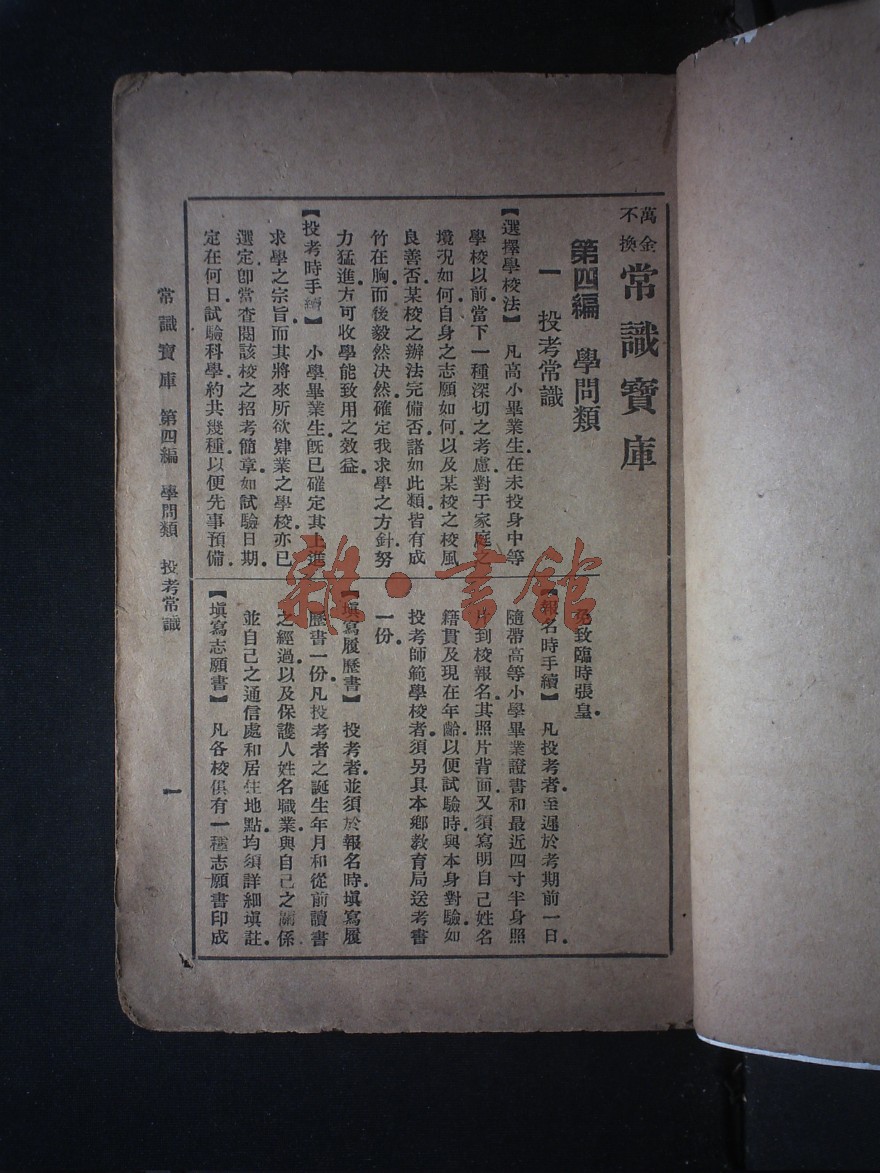 萬金
不換
常識寶庫
第四編　學問類
一　投考常識
【選擇學校法】　凡高小畢業生．在未投身中等
學校以前．當下一種深切之考慮．對于家庭之
境况如何．自身之志願如何．以及某校之校風
良善否．某校之辦法完備否．諸如此類．皆有成
竹在胸．而後毅然決然．確定我求學之方針．努
力猛進．方可收學能致用之效益．
【投考時手續】　小學畢業生．旣已確定其上進
求學之宗旨．而其將來所欲肄業之學校．亦已
選定．卽當查閱該校之招考簡章．如試驗日期．
定在何日．試驗科學．約共幾種．以便先事預備．
免致臨時張皇．
【報名時手續】　凡投考者．至遲於考期前一日．
隨帶高等小學畢業證書和最近四寸半身照
片到校報名．其照片背面．又須寫明自己姓名
籍貫及現在年齡．以便試驗時．與本身對驗．如
投考師範學校者．須另具本鄉教育局送考書
一份．
【塡寫履歷書】　投考者．並須於報名時．塡寫履
歷書一份．凡投考者之誕生年月和從前讀書
之經過．以及保護人姓名職業．與自己之關係
並自己之通信處和居住地點．均須詳細塡註．
【塡寫志願書】　凡各校俱有一種志願書印成
常識寶庫　第四編　學問類　投考常識
一
雜·書館